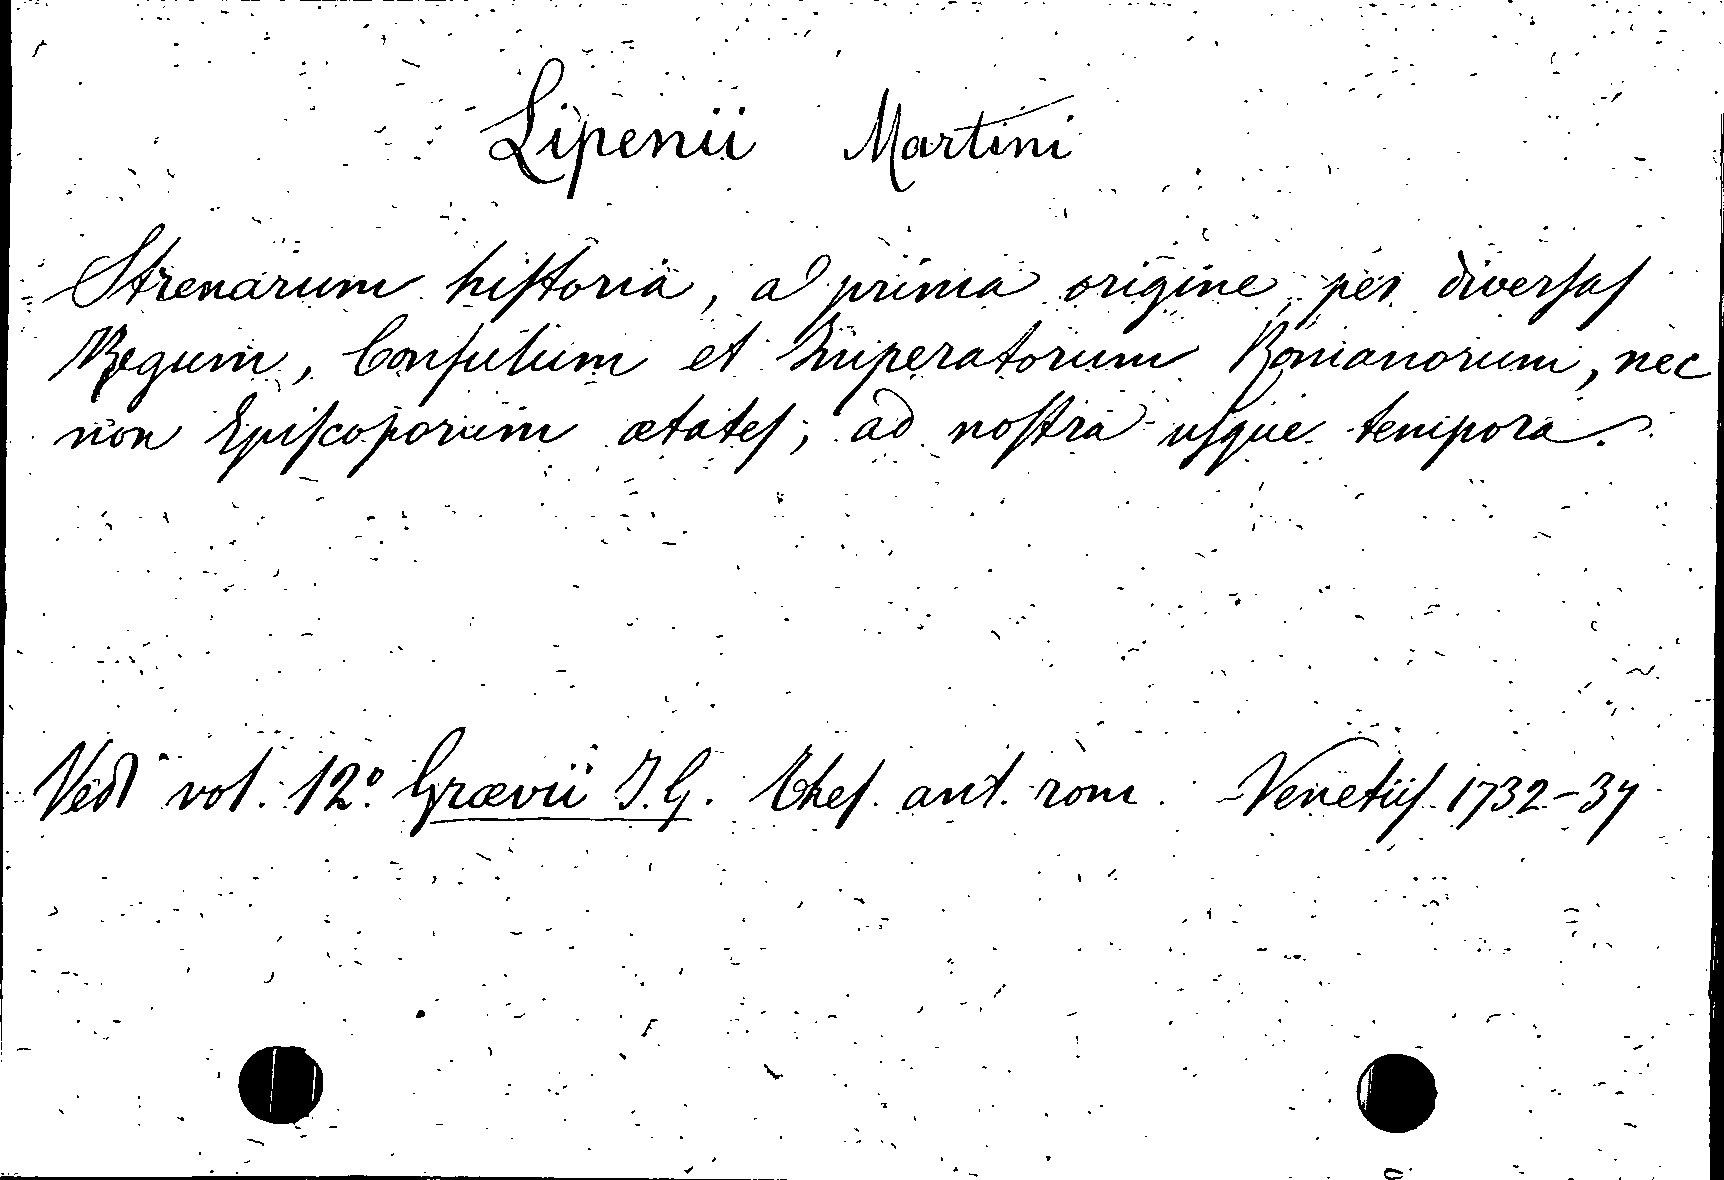 Lipenii Martini
Strenarum hiſtoria, a prima origine per diverſaſ
Regum, Conſulum et Imperatorum Romanorum, nec
non Epiſcoporum ætateſ, ad noſtra uſque tempora.
Vedi vol. 12º. Grævii J. G. Theſ. ant. rom. Venetiiſ 1732-37